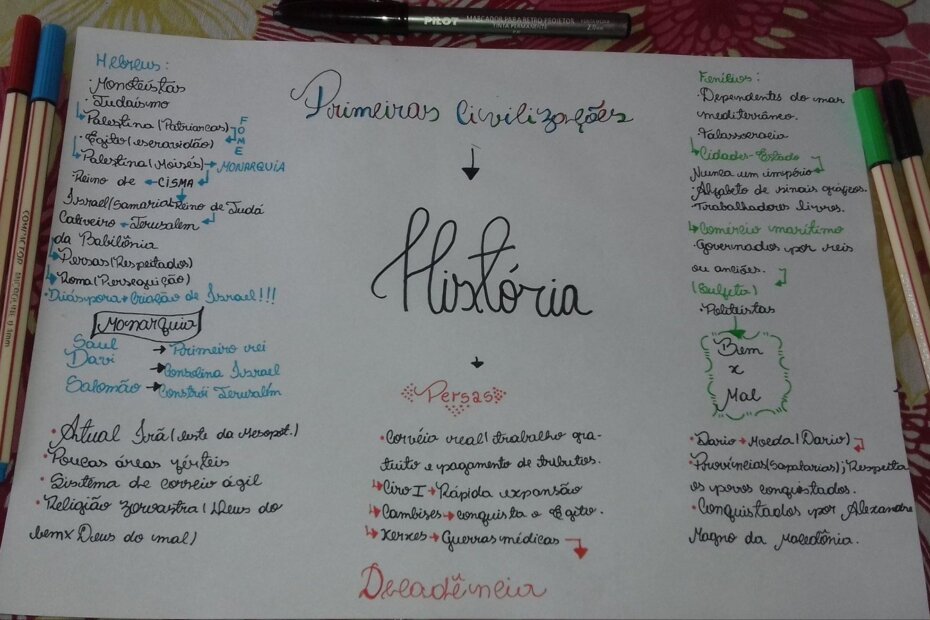 PILOT MARCADOR PARA RETRO PROJETOR
TINTA PERMANENTE
Primeiras civilizações
História
Hebreus:
· Monoteístas
· Judaísmo
↳ Palestina (Patriarcas)
FOME
↳ Egito (escravidão)
↳ Palestina (Moisés) → MONARQUIA
Reino de ← CISMA
Israel (Samaria) Reino de Judá
Cativeiro ← Jerusalém
da Babilônia
↳ Persas (Respeitados)
↳ Roma (Perseguição)
· Diáspora → Criação de Israel!!!
Monarquia
Saul → Primeiro rei
Davi → Consolina Israel
Salomão → Constrói Jerusalém
Fenícios:
· Dependentes do mar
mediterrâneo.
Talassocracia
↳ Cidades-Estado
Nunca um império
· Alfabeto de sinais gráficos.
· Trabalhadores livres.
↳ Comércio marítimo
· Governados por reis
ou anciões.
(Sulfeta)
· Politeístas
Bem
x
Mal
Persas
· Atual Irã (leste da Mesopot.)
· Poucas áreas férteis
· Sistema de correio ágil
· Religião zoroastra (Deus do
bem x Deus do mal)
· Corvéia real (trabalho gra-
tuito e pagamento de tributos.
↳ Ciro I → Rápida expansão
↳ Cambises → conquista o Egito.
↳ Xerxes → Guerras médicas
Decadência
· Dario → Moeda (Dario)
· Províncias (Sapatarias); Respeita
os povos conquistados.
· Conquistados por Alexandre
Magno da Macedônia.
COMPACTOR MICROLINE 0.4mm